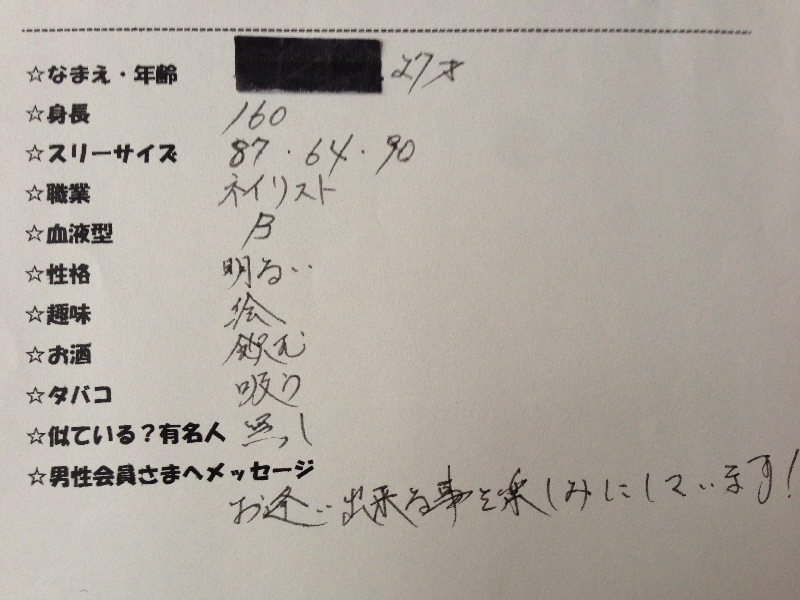 ☆なまえ・年齢 27才
☆身長 160
☆スリーサイズ 87・64・90
☆職業 ネイリスト
☆血液型 B
☆性格 明るい
☆趣味 絵
☆お酒 飲む
☆タバコ 吸う
☆似ている？有名人 無し
☆男性会員さまへメッセージ
お逢い出来る事を楽しみにしています！